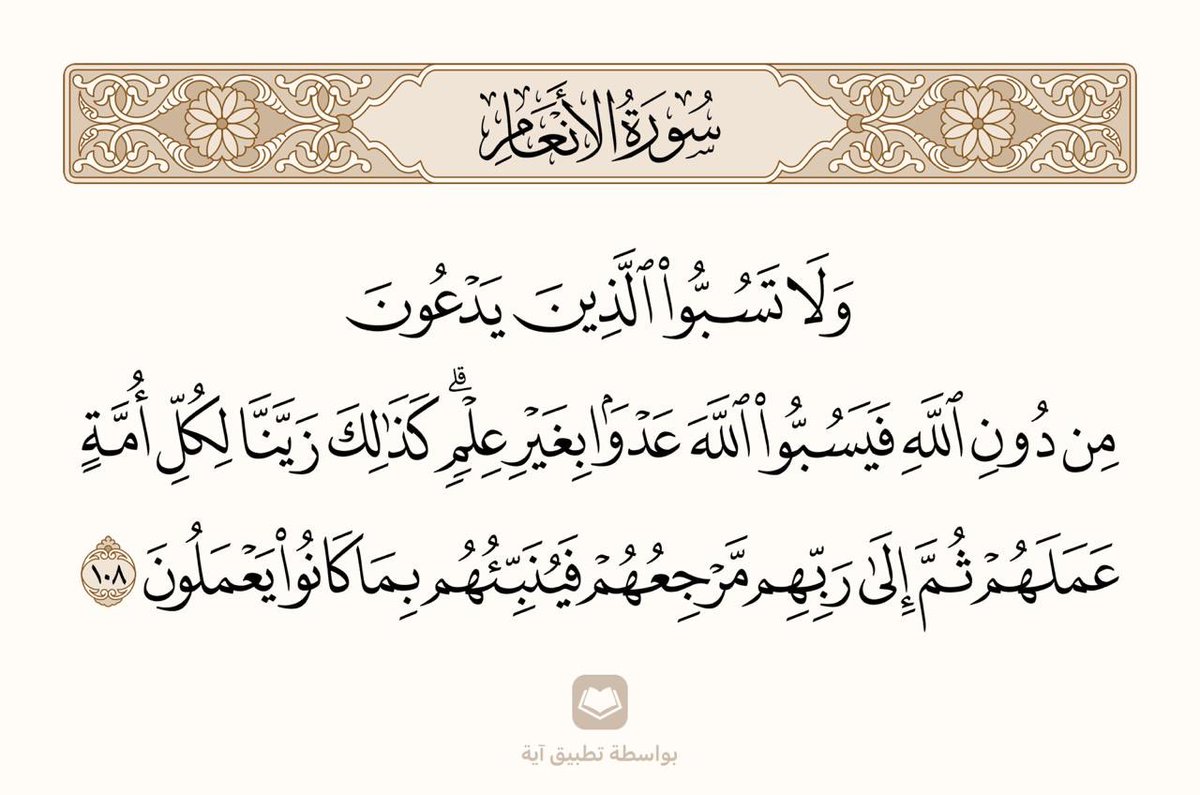 سُورَةُ الأَنْعَامِ
وَلَا تَسُبُّوا۟ ٱلَّذِينَ يَدْعُونَ
مِن دُونِ ٱللَّهِ فَيَسُبُّوا۟ ٱللَّهَ عَدْوًۢا بِغَيْرِ عِلْمٍۢ ۗ كَذَٰلِكَ زَيَّنَّا لِكُلِّ أُمَّةٍ
عَمَلَهُمْ ثُمَّ إِلَىٰ رَبِّهِم مَّرْجِعُهُمْ فَيُنَبِّئُهُم بِمَا كَانُوا۟ يَعْمَلُونَ ١٠٨
بواسطة تطبيق آية